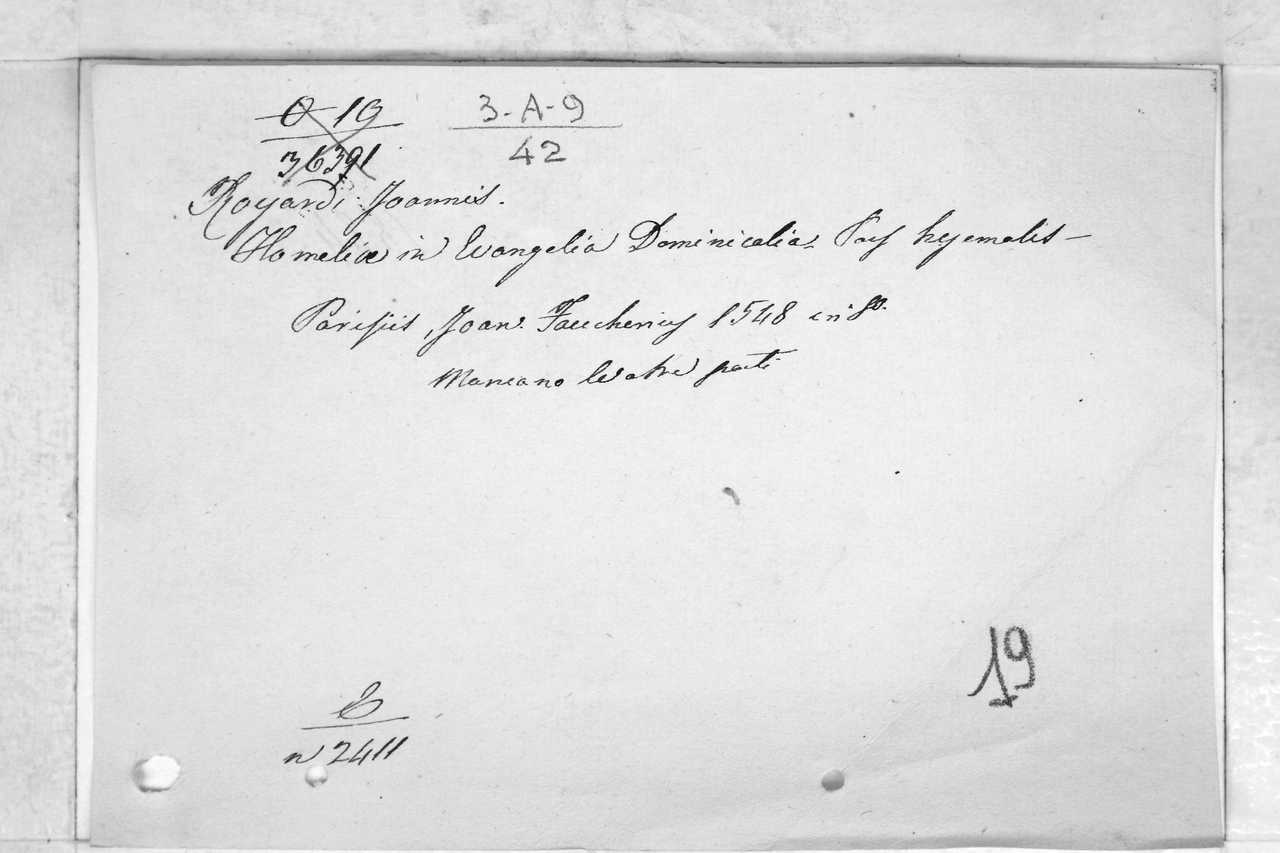 O 19 3-A-9
36391 42
Royardi Joannis.
Homeliæ in Evangelia Dominicalia Pars hyemalis –
Parisiis, Joan. Foucherius 1548 in 8o.
Mancano le altre parti
19
n 2411